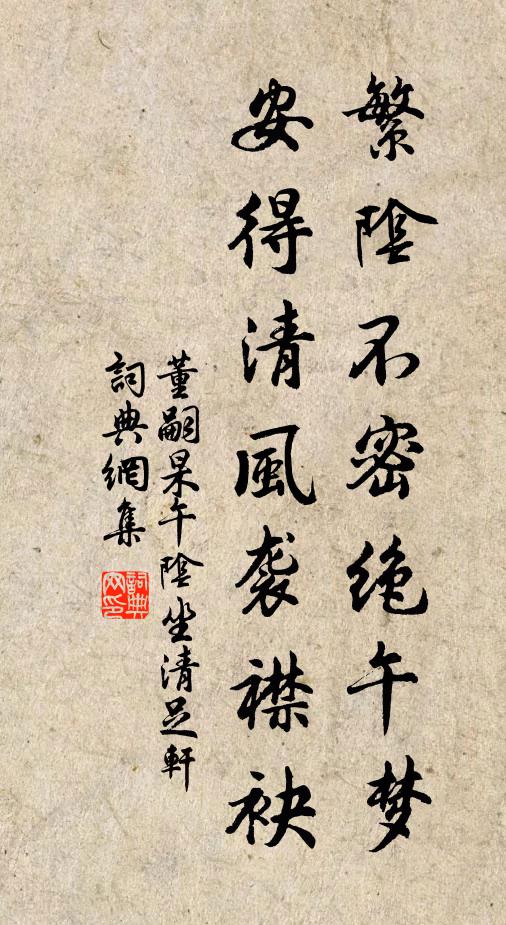 繁陰不密绝午梦
安得清風袭襟袂
董嗣杲午陰坐清足軒
詞典網集
詞典網印